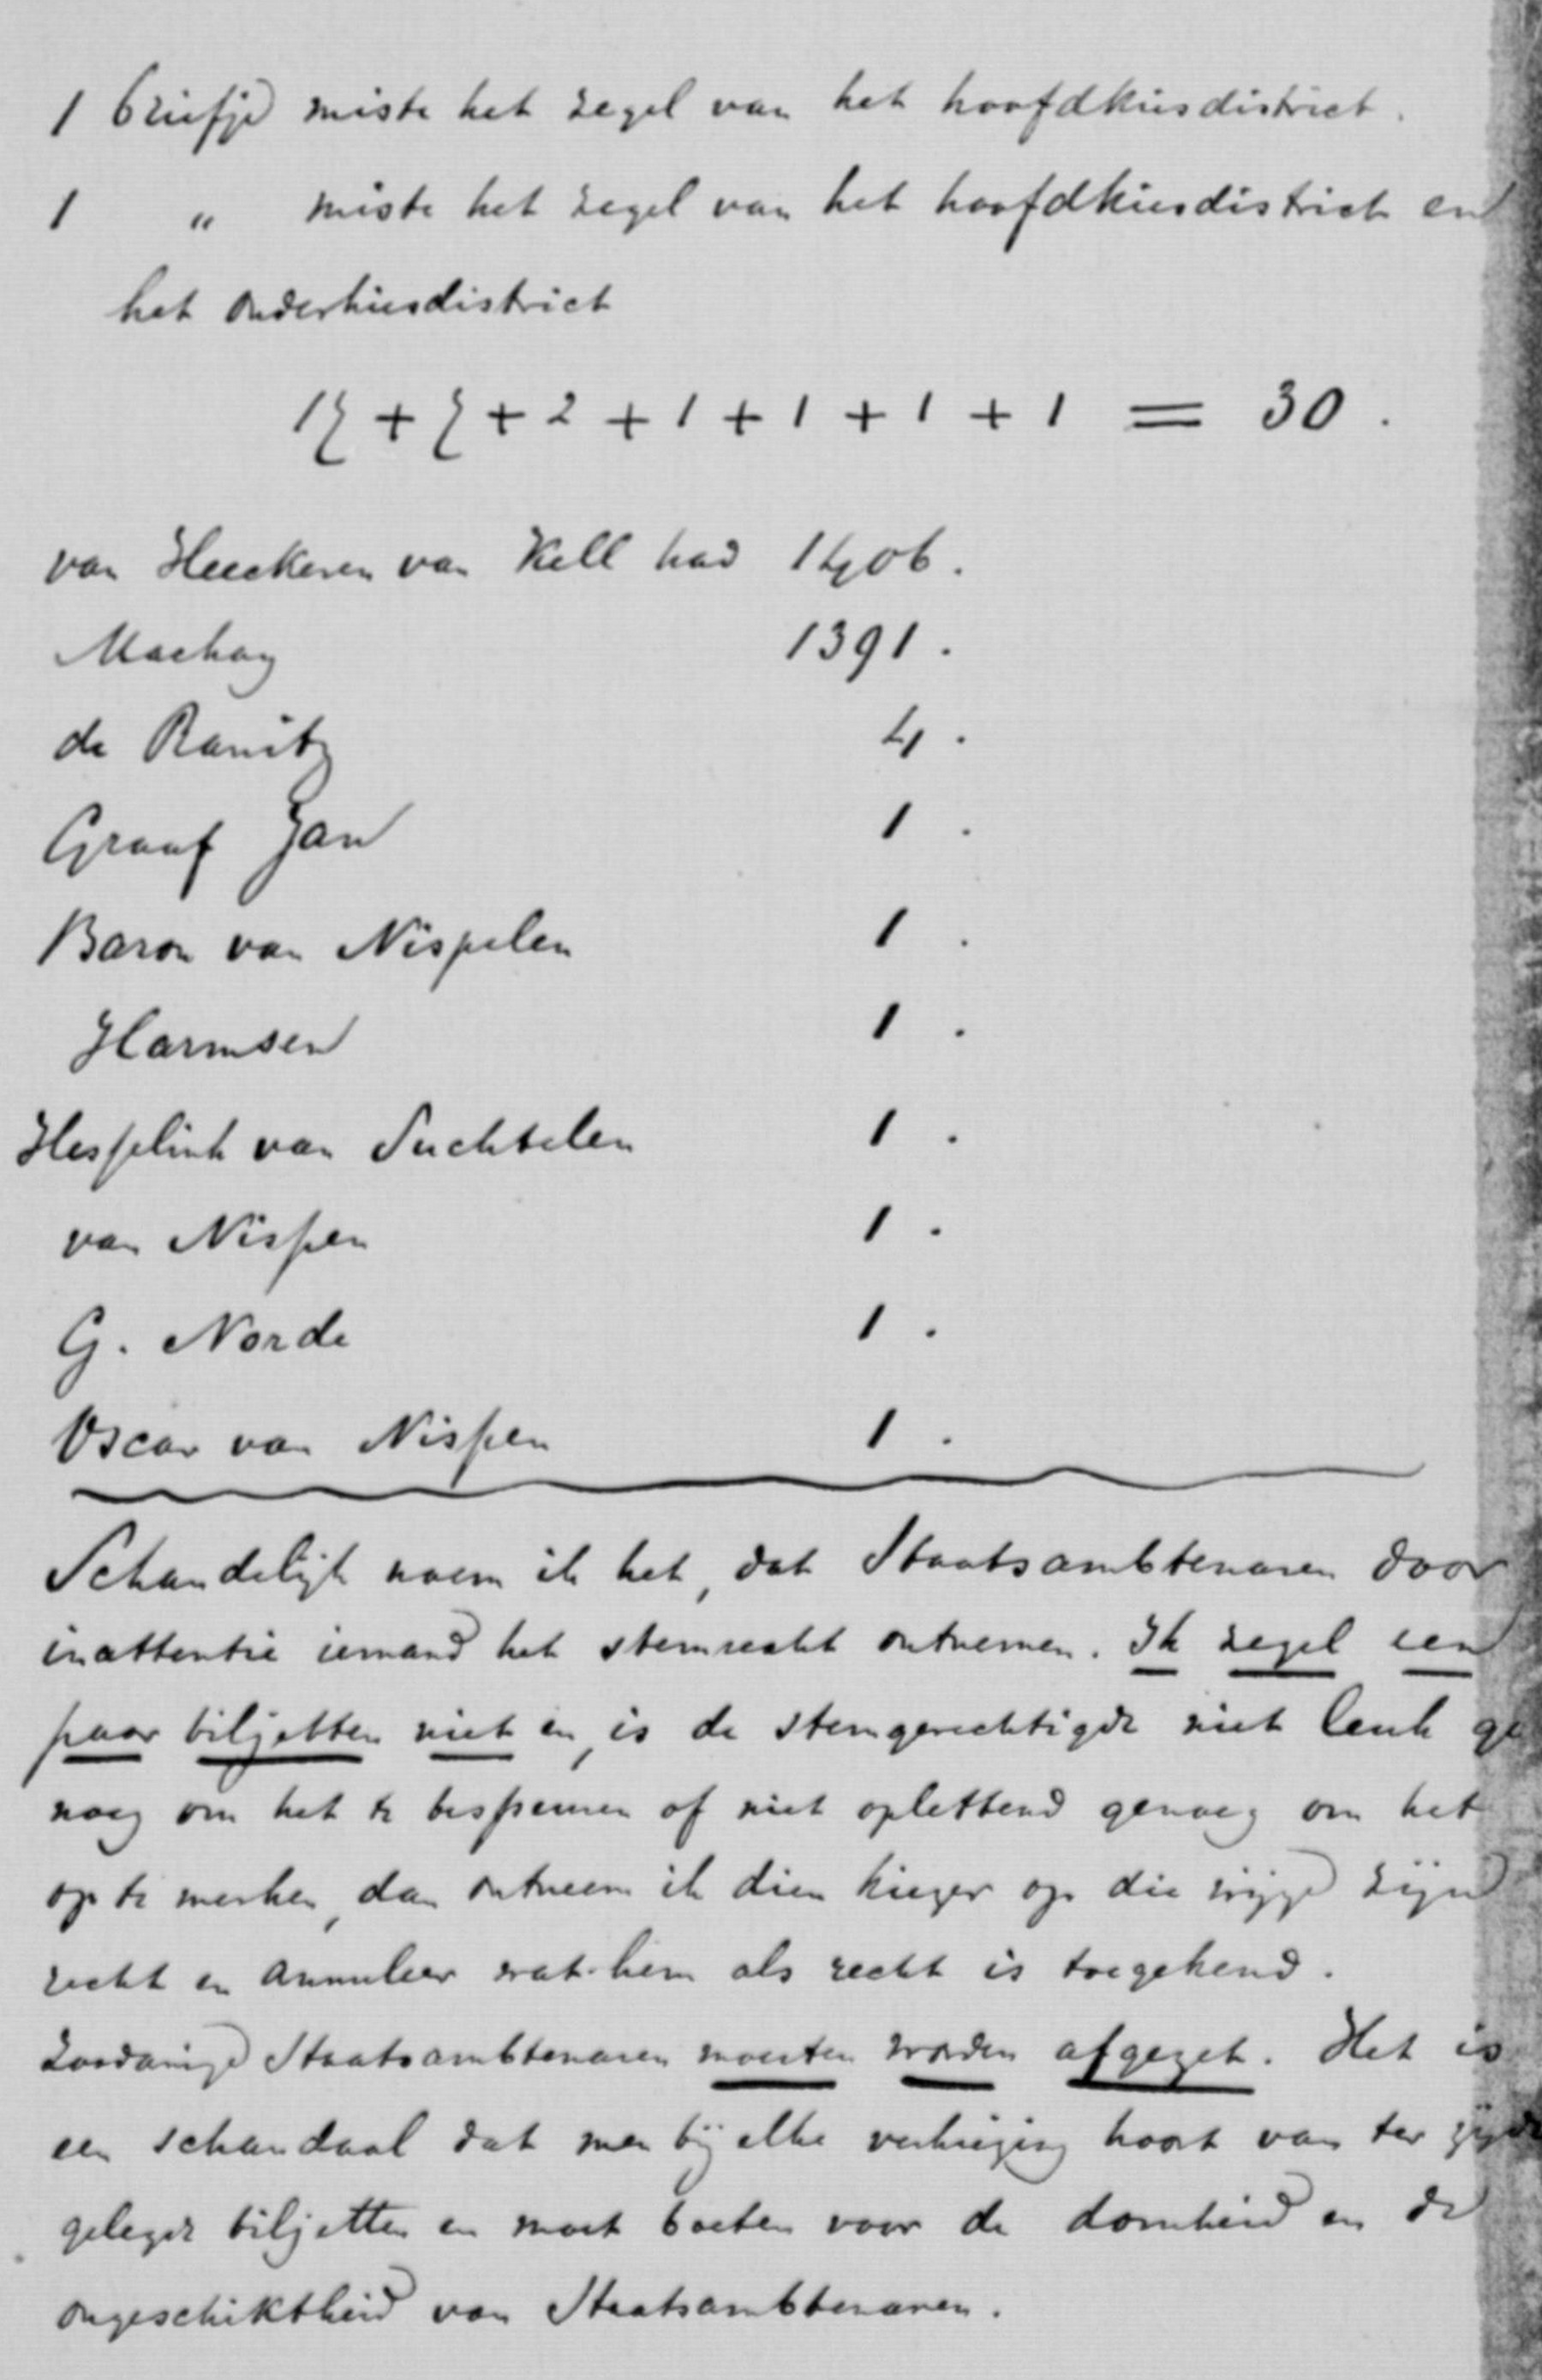 1 briefje miste het zegel van het hoofdkiesdistrict.
1 " miste het zegel van het hoofdkiesdistrict en
het onderkiesdistrict
+ 2 + 1 + 1 + 1 + 1 = 30.
van Heeckeren van Kell had 1406.
Mackay 1391.
de Ranitz 4.
Graaf Jan 1.
Baron van Nispelen 1.
Harmsen 1.
Hesselink van Suchtelen 1.
van Nispen 1.
G. Norde 1.
Oscar van Nispen 1.
Schandelijk noem ik het, dat Staatsambtenaren door
inattentie iemand het stemrecht ontnemen. Ik zegel een
paar biljetten niet en, is de stemgerechtigde niet leuk ge
noeg om het te bespeuren of niet oplettend genoeg om het
op te merken, dan ontneem ik dien kiezer op die wijze zijn
recht en annuleer wat hem als recht is toegekend.
Zoodanige Staatsambtenaren moesten worden afgezet. Het is
een schandaal dat men bij elke verkiezing hoort van ter zijde
gelegde biljetten en moet boeten voor de domheid en de
ongeschiktheid van Staatsambtenaren.